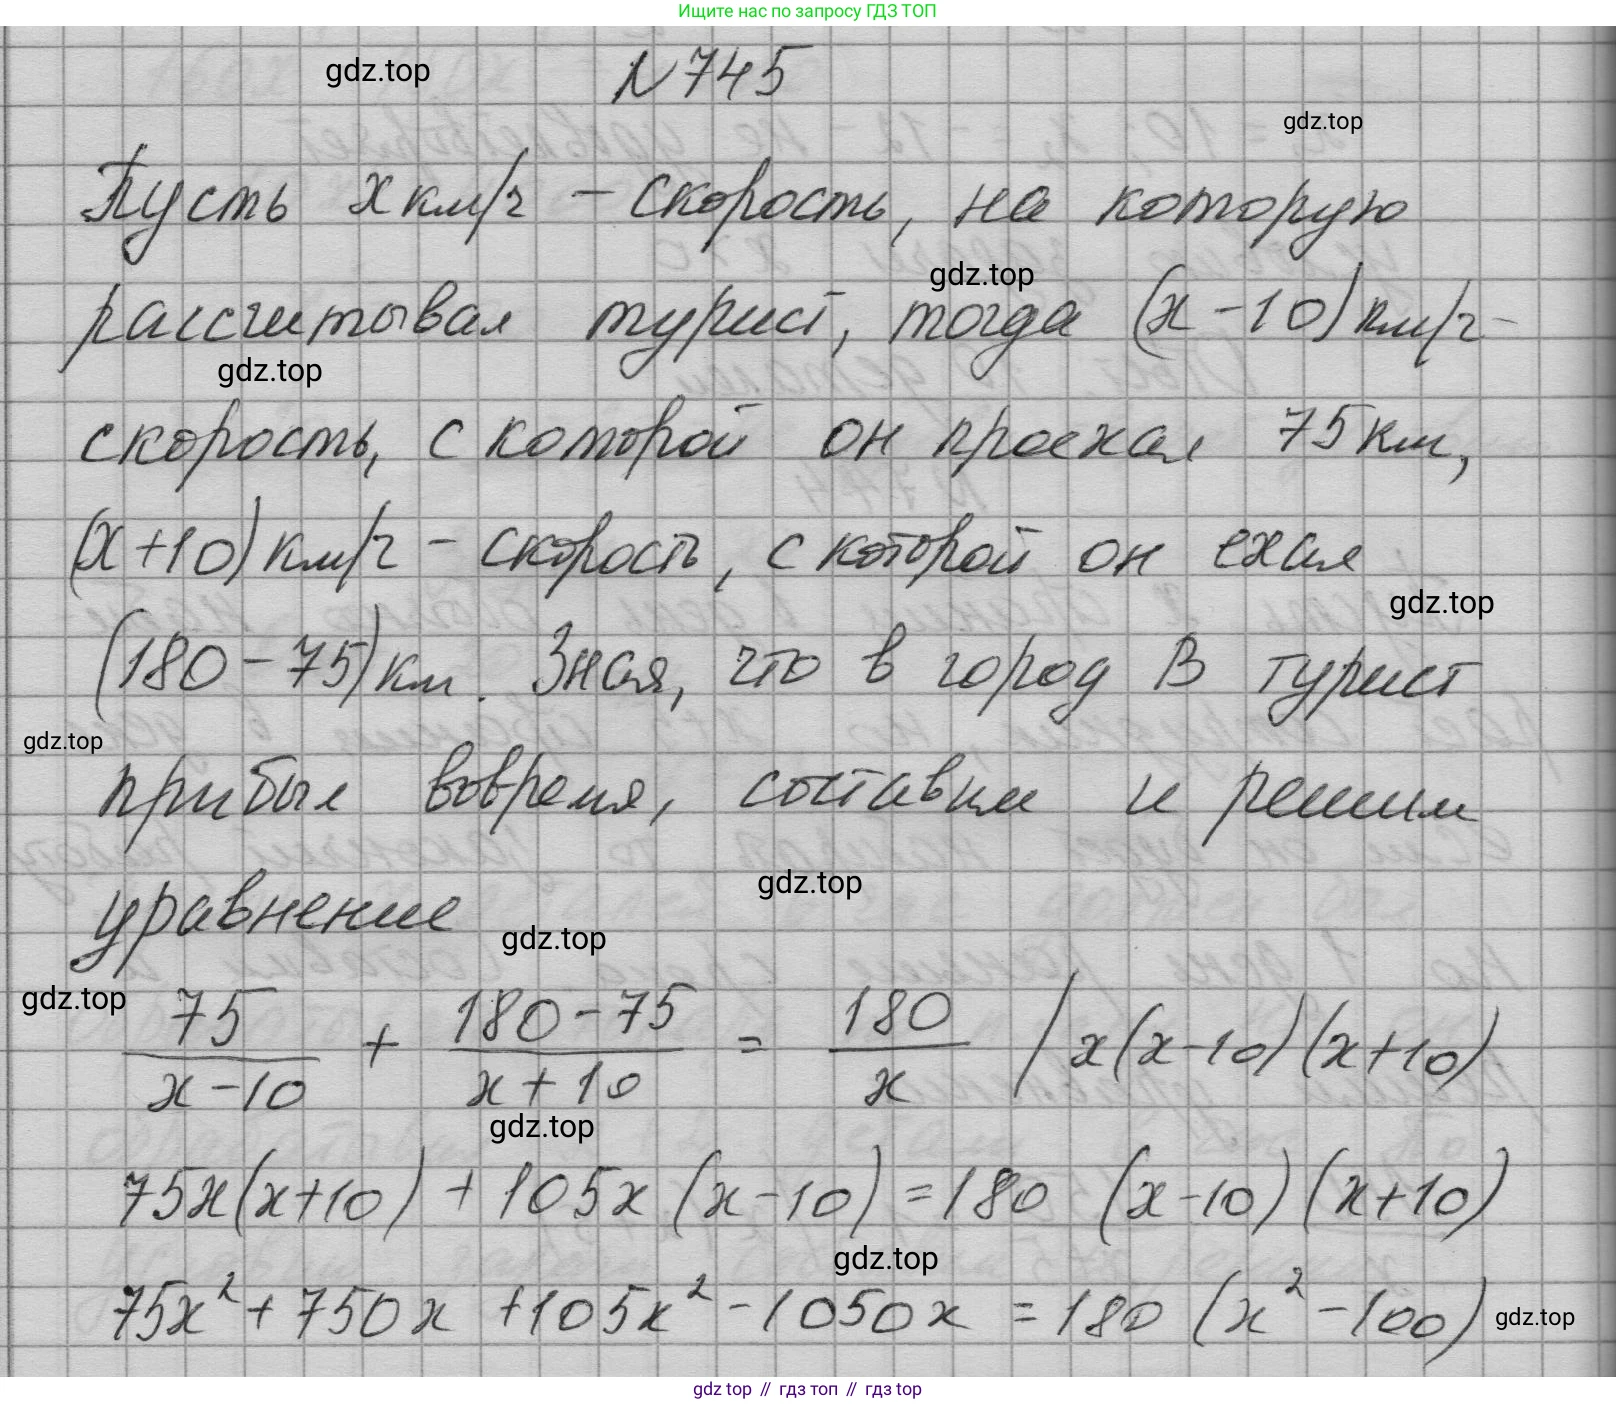 Ищите нас по запросу ГДЗ ТОП
gdz.top
№ 745
gdz.top
Пусть x км/ч – скорость, на которую
gdz.top
рассчитывал турист, тогда (x – 10) км/ч –
gdz.top
скорость, с которой он проехал 75 км,
(x + 10) км/ч – скорость, с которой он ехал
gdz.top
(180 – 75) км. Зная, что в город В турист
gdz.top
прибыл вовремя, составим и решим
gdz.top
уравнение
gdz.top
gdz.top
75/(x – 10) + (180 – 75)/(x + 10) = 180/x / x(x – 10)(x + 10)
gdz.top
75x(x + 10) + 105x(x – 10) = 180 (x – 10)(x + 10)
gdz.top
75x² + 750x + 105x² – 1050x = 180 (x² – 100)
gdz.top
gdz top // гдз топ // гдз top